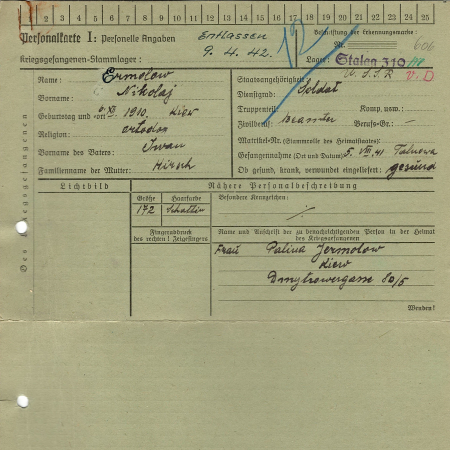 1 2 3 4 5 6 7 8 9 10 11 12 13 14 15 16 17 18 19 20 21 22 23 24 25
Personalkarte I: Personelle Angaben
Entlassen
9. 4. 42.
Kriegsgefangenen-Stammlager:
Beschriftung der Erkennungsmarke:
Nr. 606
Lager: Stalag 310
V. D
Des Kriegsgefangenen
Name: Ermolow
Vorname: Nikolaj
Geburtstag und -ort: 6. XI 1910. Kiew
Religion: ortodox
Vorname des Vaters: Iwan
Familienname der Mutter: Hirsch
Staatsangehörigkeit: U.S.S.R
Dienstgrad: Soldat
Truppenteil: Komp. usw.:
Zivilberuf: Beamter Berufs-Gr.: –
Matrikel-Nr. (Stammrolle des Heimatstaates):
Gefangennahme (Ort und Datum): 5. VIII. 41
Ob gesund, krank, verwundet eingeliefert: gesund
Lichtbild
Nähere Personalbeschreibung
Größe Haarfarbe
172
Besondere Kennzeichen:
Fingerabdruck
des rechten ! Zeigefingers
Name und Anschrift der zu benachrichtigenden Person in der Heimat
des Kriegsgefangenen
Frau Palina Jermolow
Kiew
Dmytrowergasse 80/5
Wenden!